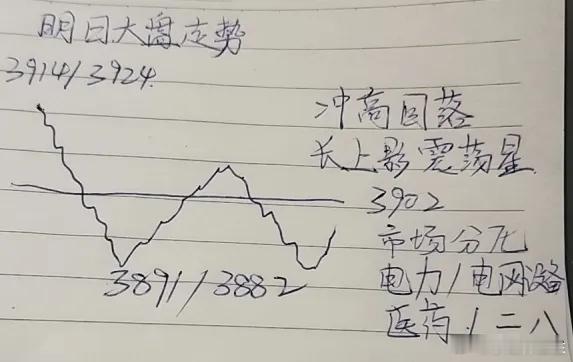 明日大盘走势
3914/3924.
冲高回落
长上影震荡星
3902
市场分化
3891/3882
电力/电网设备
医药/二八